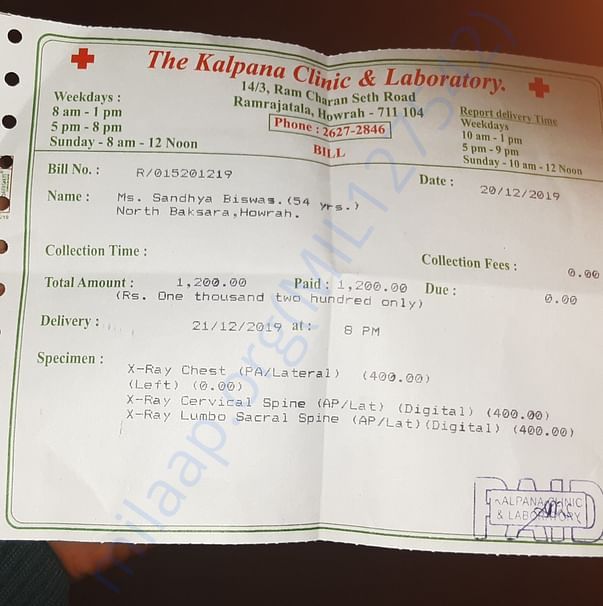 The Kalpana Clinic & Laboratory.
14/3, Ram Charan Seth Road
Ramrajatala, Howrah - 711 104
Phone : 2627-2846
BILL
Weekdays :
8 am - 1 pm
5 pm - 8 pm
Sunday - 8 am - 12 Noon
Report delivery Time
Weekdays
10 am - 1 pm
5 pm - 9 pm
Sunday - 10 am - 12 Noon
Bill No. : R/015201219
Date : 20/12/2019
Name : Ms. Sandhya Biswas.(54 yrs.)
North Baksara,Howrah.
Collection Time :
Collection Fees : 0.00
Total Amount : 1,200.00 Paid : 1,200.00 Due : 0.00
(Rs. One thousand two hundred only)
Delivery : 21/12/2019 at : 8 PM
Specimen : X-Ray Chest (PA/Lateral) (400.00)
(Left) (0.00)
X-Ray Cervical Spine (AP/Lat) (Digital) (400.00)
X-Ray Lumbo Sacral Spine (AP/Lat)(Digital) (400.00)
PAID
KALPANA CLINIC
& LABORATORY
milaap.org(MIL127542)